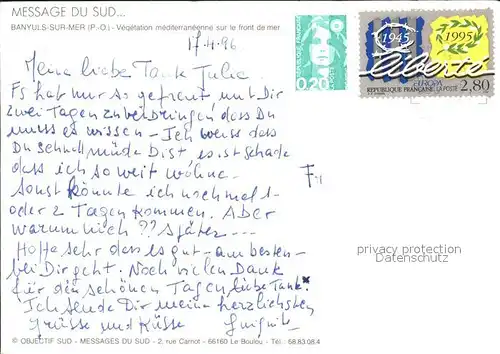 MESSAGE DU SUD...
BANYULS-SUR-MER (P.-O.) - Végétation méditerranéenne sur le front de mer
17.4.96
Meine liebe Tante Julie
Es hat mir so gefreut mit Dir
zwei Tagen zu bringen, dass Du
muss es wissen - Ich weiss das
Du schnell müde bist, es ist schade
dass ich so weit wohne.
Sonst könnte ich nochmal 1-
oder 2 Tagen kommen. Aber
warum nich ?? Später ---
Hoffe sehr dass es gut - am besten -
bei Dir geht. Noch vielen Dank
für den schönen Tagen liebe Tante
Ich sende Dir meine herzlichsten
Grüsse und Küsse
RÉPUBLIQUE FRANÇAISE
0,20
1945
1995
liberté
EUROPA
RÉPUBLIQUE FRANÇAISE LA POSTE 2,80
privacy protection
Datenschutz
© OBJECTIF SUD - MESSAGES DU SUD - 2, rue Carnot - 66160 Le Boulou - Tél.: 68.83.08.4